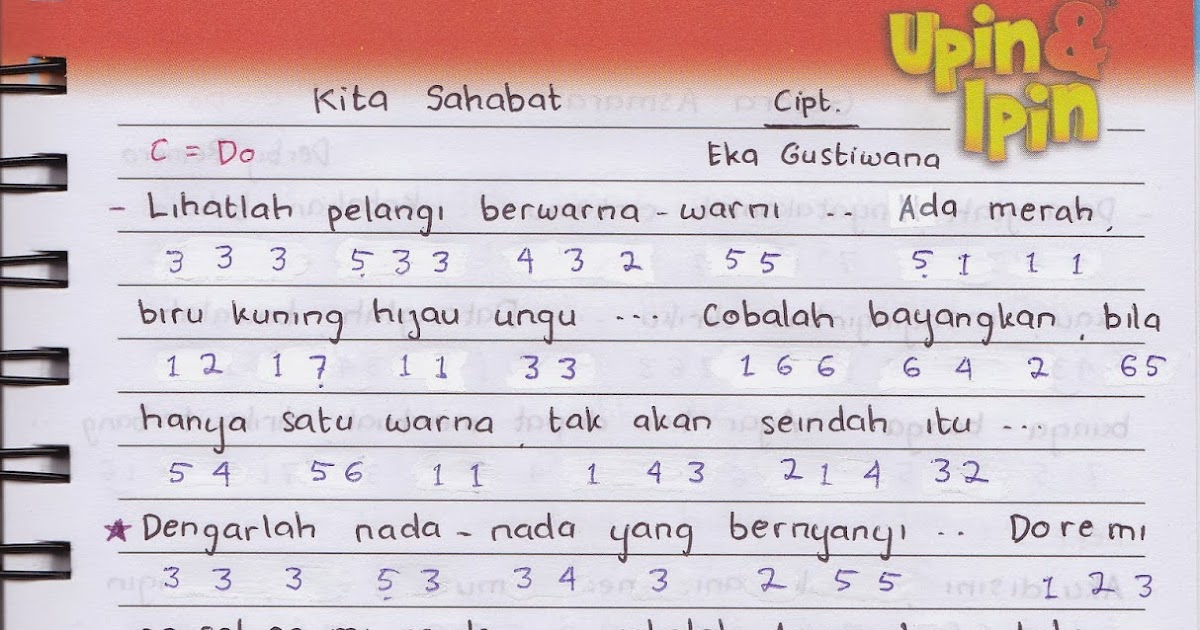 Upin &
Ipin
Kita Sahabat Cipt.
C = Do Eka Gustiwana
- Lihatlah pelangi berwarna - warni ... Ada merah,
3 3 3 5̣ 3 3 4 3 2 5 5 5̣ 1 1 1
biru kuning hijau ungu .... Cobalah bayangkan, bila
1 2 1 7̣ 1 1 3 3 1 6 6 6 4 2 6 5
hanya satu warna, tak akan seindah itu ....
5 4 5 6 1 1 1 4 3 2 1 4 3 2
★ Dengarlah nada - nada yang bernyanyi .. Do re mi
3 3 3 5̣ 3 3 4 3 2 5 5 1 2 3